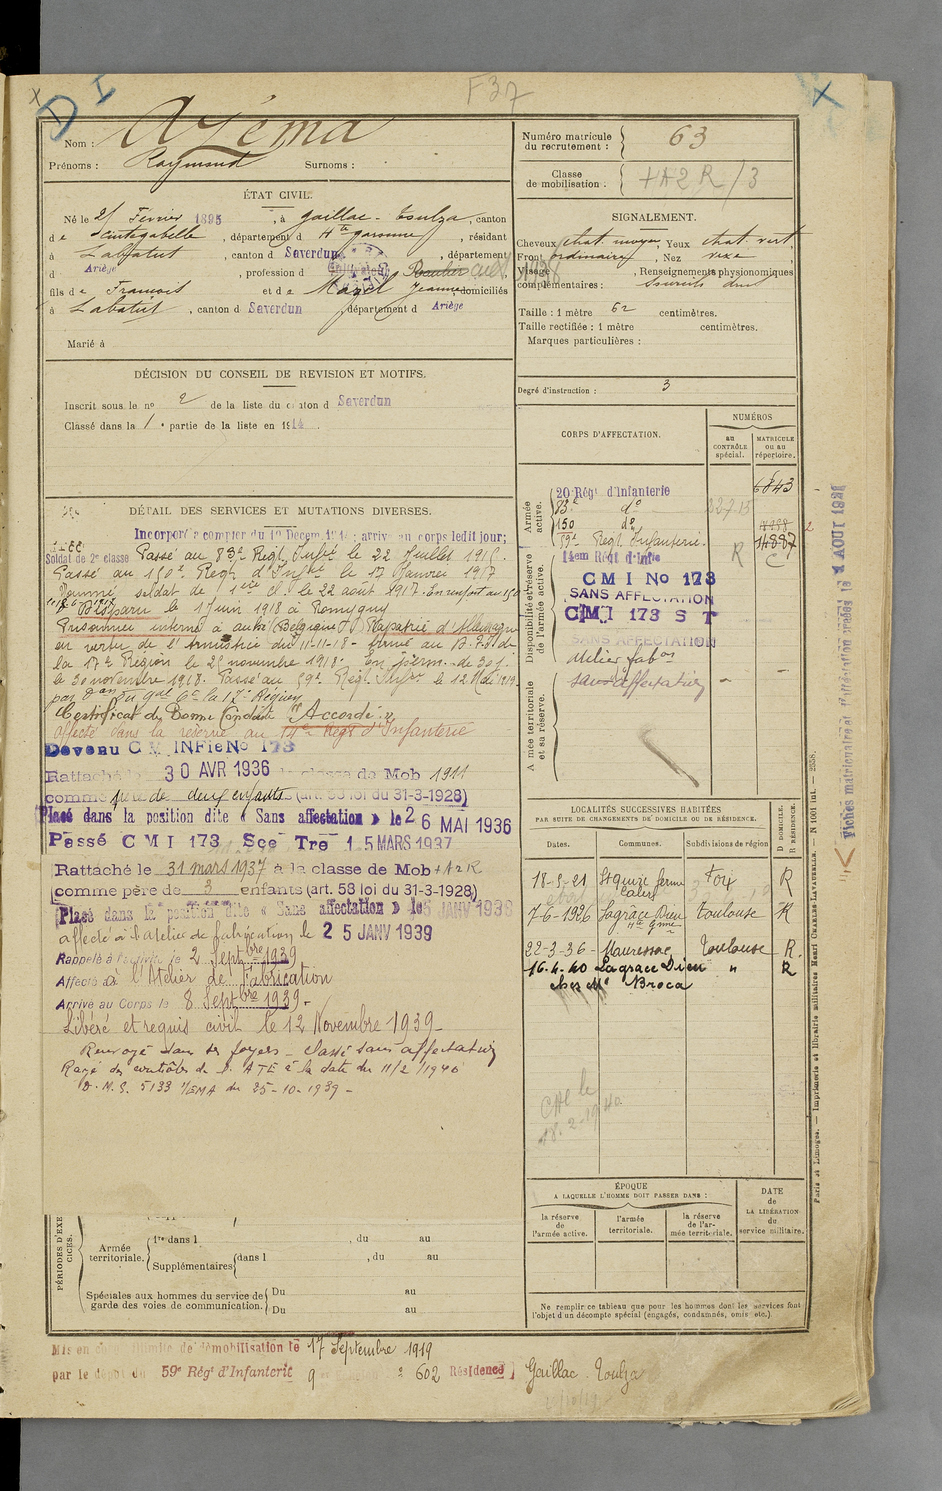 F37
D I
Nom : Azéma
Prénoms : Raymond Surnoms :
Numéro matricule
du recrutement : 63
Classe
de mobilisation : +A2R/3
ÉTAT CIVIL.
Né le Février 1895, à Gaillac-Toulza, canton
de Cintegabelle, département d Hte Garonne, résidant
à Labatut, canton d Saverdun, département
d Ariège, profession d
fils de François et de Mazel Jeanne, domiciliés
à Labatut, canton d Saverdun, département d Ariège
Marié à
SIGNALEMENT.
Cheveux chat. moyen Yeux chat. vert
Front ordinaire, Nez vexe
Visage , Renseignements physionomiques
complémentaires :
Taille : 1 mètre 62 centimètres.
Taille rectifiée : 1 mètre centimètres.
Marques particulières :
Degré d'instruction : 3
DÉCISION DU CONSEIL DE REVISION ET MOTIFS.
Inscrit sous le no 2 de la liste du canton d Saverdun
Classé dans la 1e partie de la liste en 1914.
DÉTAIL DES SERVICES ET MUTATIONS DIVERSES.
Incorporé à compter du Décem. 1914; arrivé au corps ledit jour;
Soldat de 2e classe Passé au 83e Regt Infie le 22 Juillet 1915.
Passé au 150e Regt d'Infie le 17 Janvier 1917
Nommé soldat de 1ère Cl. le 22 aout 1917. En renfort au
Disparu le 1 juin 1918 à Romigny
Prisonnier interné à (Belgique) Rapatrié d'Allemagne
en vertu de l'Armistice du 11-11-18 - Arrivé au
la 17e Région le 25 novembre 1918. En perm. de 30 j.
le 30 novembre 1918. Passé au 59e Regt Infie le 12 Mai 1919
par du Gal Ct la 17e Région
Certificat de Bonne Conduite "Accordé"
affecté dans la réserve au 14e Regt d'Infanterie
Devenu C M INFie No 173
Rattaché le 30 AVR 1936 la classe de Mob 1911
comme père de deux enfants (art. 58 loi du 31-3-1928)
Placé dans la position dite « Sans affectation » le 26 MAI 1936
Passé C M I 173 Sce Tre 15 MARS 1937
Rattaché le 31 mars 1937 à la classe de Mob +A2R
comme père de 3 enfants (art. 58 loi du 31-3-1928)
Placé dans la position dite « Sans affectation » le JANV 1938
affecté à l'atelier de fabrication le 25 JANV 1939
Rappelé à l'activité le 2 Septbre 1939
Affecté à l'Atelier de Fabrication
Arrivé au Corps le 8 Septbre 1939 -
Libéré et requis civil le 12 Novembre 1939 -
Renvoyé dans ses foyers - Classé sans affectation
Rayé des contrôles de l'ATE à la date du 11/2/1940
D.M.S. 5133 1/EMA du 25-10-1939 -
CORPS D'AFFECTATION.
NUMÉROS
au
CONTRÔLE
spécial.
MATRICULE
ou au
répertoire.
Armée
active.
20 Régt d'Infanterie 6843
83e do
150 do
59e Regt Infanterie. 14887
Disponibilité et réserve
de l'armée active.
14em Régt d'Infie R
C M I No 173
SANS AFFECTATION
C M I 173 S T
SANS AFFECTATION
Armée territoriale
et sa réserve.
Atelier fabon
sans affectation
LOCALITÉS SUCCESSIVES HABITÉES
PAR SUITE DE CHANGEMENTS DE DOMICILE OU DE RÉSIDENCE.
Dates. Communes. Subdivisions de région D DOMICILE. R RÉSIDENCE.
18-5-21 Foix R
7-6-1926 Lagrâce Dieu Toulouse R
22-3-36 - Mauressac Toulouse R.
16.4.40 Lagrace Dieu " R
chez Mr Broca
18.2-1940
ÉPOQUE
A LAQUELLE L'HOMME DOIT PASSER DANS :
la réserve
de
l'armée active.
l'armée
territoriale.
la réserve
de l'ar-
mée territoriale.
DATE
de
LA LIBÉRATION
du
service militaire.
Ne remplir ce tableau que pour les hommes dont les services font
l'objet d'un décompte spécial (engagés, condamnés, omis, etc.).
PÉRIODES D'EXERCICES.
Armée
territoriale.
1re dans l , du au
Supplémentaires dans l , du au
Spéciales aux hommes du service de
garde des voies de communication.
Du au
Du au
Mis en congé illimité de démobilisation le 17 Septembre 1919
par le dépôt du 59e Régt d'Infanterie 9 602 Résidence Gaillac Toulza
Paris et Limoges. — Imprimerie et librairie militaires Henri CHARLES-LAVAUZELLE.
AOUT 1921